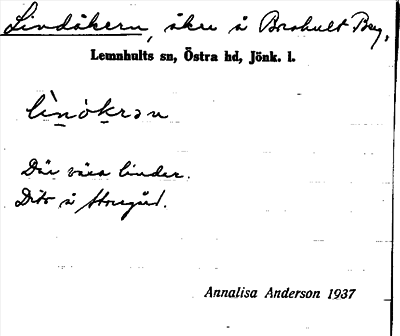 Lindåkern, åker å Brohult Bg,
Lemnhults sn, Östra hd, Jönk. l.
lìnòkrən
Där växa lindar.
Dito å Storgård.
Annalisa Anderson 1937